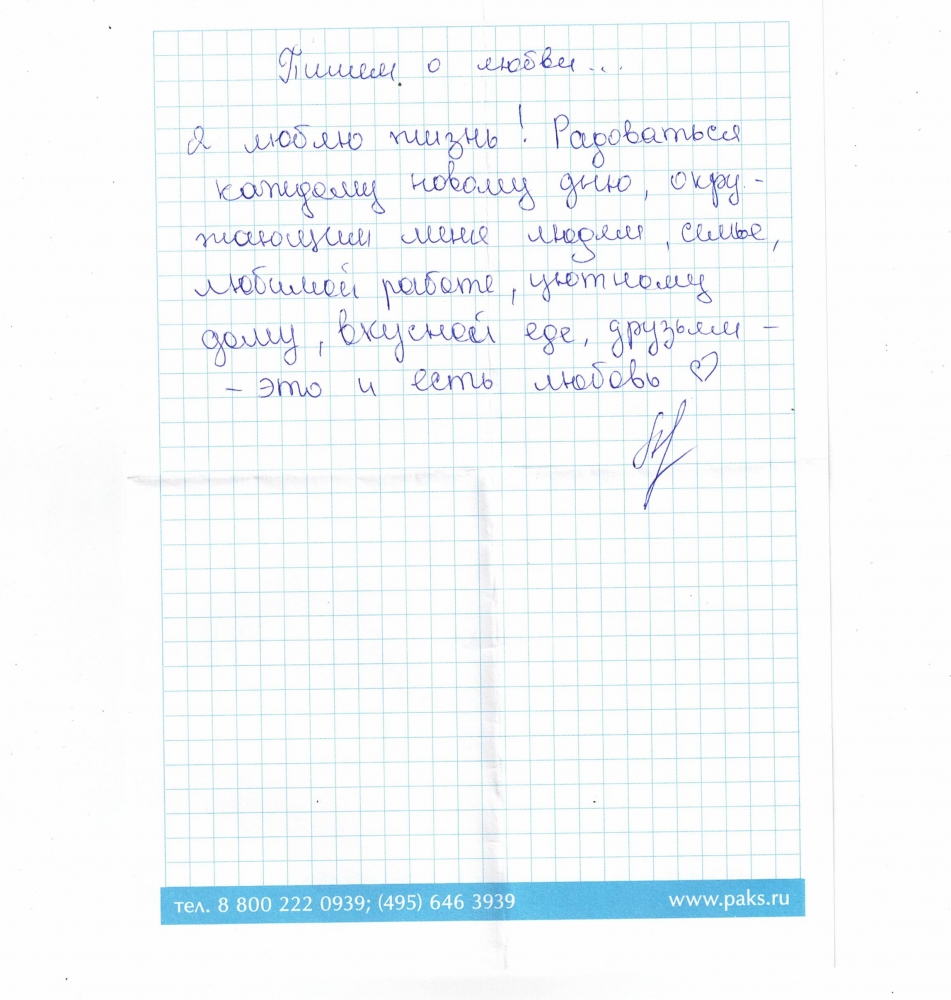 Пишем о любви...
Я люблю жизнь! Радоваться
каждому новому дню, окру-
жающим меня людям, семье,
любимой работе, уютному
дому, вкусной еде, друзьям -
- это и есть любовь ♡
тел. 8 800 222 0939; (495) 646 3939
www.paks.ru